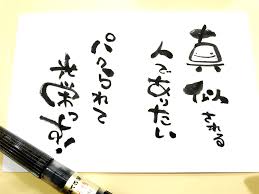 真似される
人でありたい
パクられて
光栄っす!